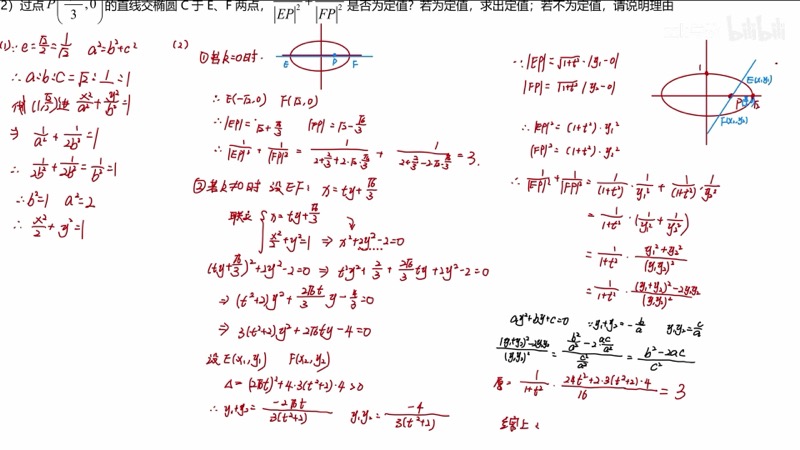 2) 过点 P(√6/3, 0) 的直线交椭圆 C 于 E、F 两点，1/|EP|² + 1/|FP|² 是否为定值？若为定值，求出定值；若不为定值，请说明理由
(1): ∵ e = √2/2 = 1/√2   a² = b² + c²
∴ a:b:c = √2:1:1
(1, √2/2) x²/a² + y²/b² = 1
⇒ 1/a² + 1/2b² = 1
∴ 1/2b² + 1/2b² = 1/b² = 1
∴ b² = 1   a² = 2
∴ x²/2 + y² = 1
(2)
① 若 k=0 时.
E P F
∴ E(-√2, 0)   F(√2, 0)
∴ |EP| = √2 + √6/3   |FP| = √2 - √6/3
∴ 1/|EP|² + 1/|FP|² = 1/(2+2/3+2·√2·√6/3) + 1/(2+2/3-2√2·√6/3) = 3.
② 若 k≠0 时 设 EF: x = ty + √6/3
联立 { x = ty + √6/3
x²/2 + y² = 1 ⇒ x² + 2y² - 2 = 0
(ty + √6/3)² + 2y² - 2 = 0 ⇒ t²y² + 2/3 + 2√6/3 ty + 2y² - 2 = 0
⇒ (t²+2)y² + 2√6t/3 y - 4/3 = 0
⇒ 3(t²+2)y² + 2√6ty - 4 = 0
设 E(x₁, y₁)   F(x₂, y₂)
Δ = (2√6t)² + 4·3(t²+2)·4 > 0
∴ y₁+y₂ = -2√6t/3(t²+2)   y₁y₂ = -4/3(t²+2)
∵ |EP| = √(1+t²) · |y₁ - 0|
|FP| = √(1+t²) · |y₂ - 0|
1 E(x₁,y₁) P √2 F(x₂,y₂)
∴ |EP|² = (1+t²)·y₁²
|FP|² = (1+t²)·y₂²
∴ 1/|EP|² + 1/|FP|² = 1/(1+t²) · 1/y₁² + 1/(1+t²) · 1/y₂²
= 1/(1+t²) · (1/y₁² + 1/y₂²)
= 1/(1+t²) · (y₁²+y₂²)/(y₁y₂)²
= 1/(1+t²) · ((y₁+y₂)² - 2y₁y₂)/(y₁y₂)²
ay²+by+c=0   ∵ y₁+y₂ = -b/a   y₁y₂ = c/a
((y₁+y₂)² - 2y₁y₂)/(y₁y₂)² = (b²/a² - 2ac/a²)/(c²/a²) = (b² - 2ac)/c²
原 = 1/(1+t²) · (24t² + 2·3(t²+2)·4)/16 = 3
综上
bilibili